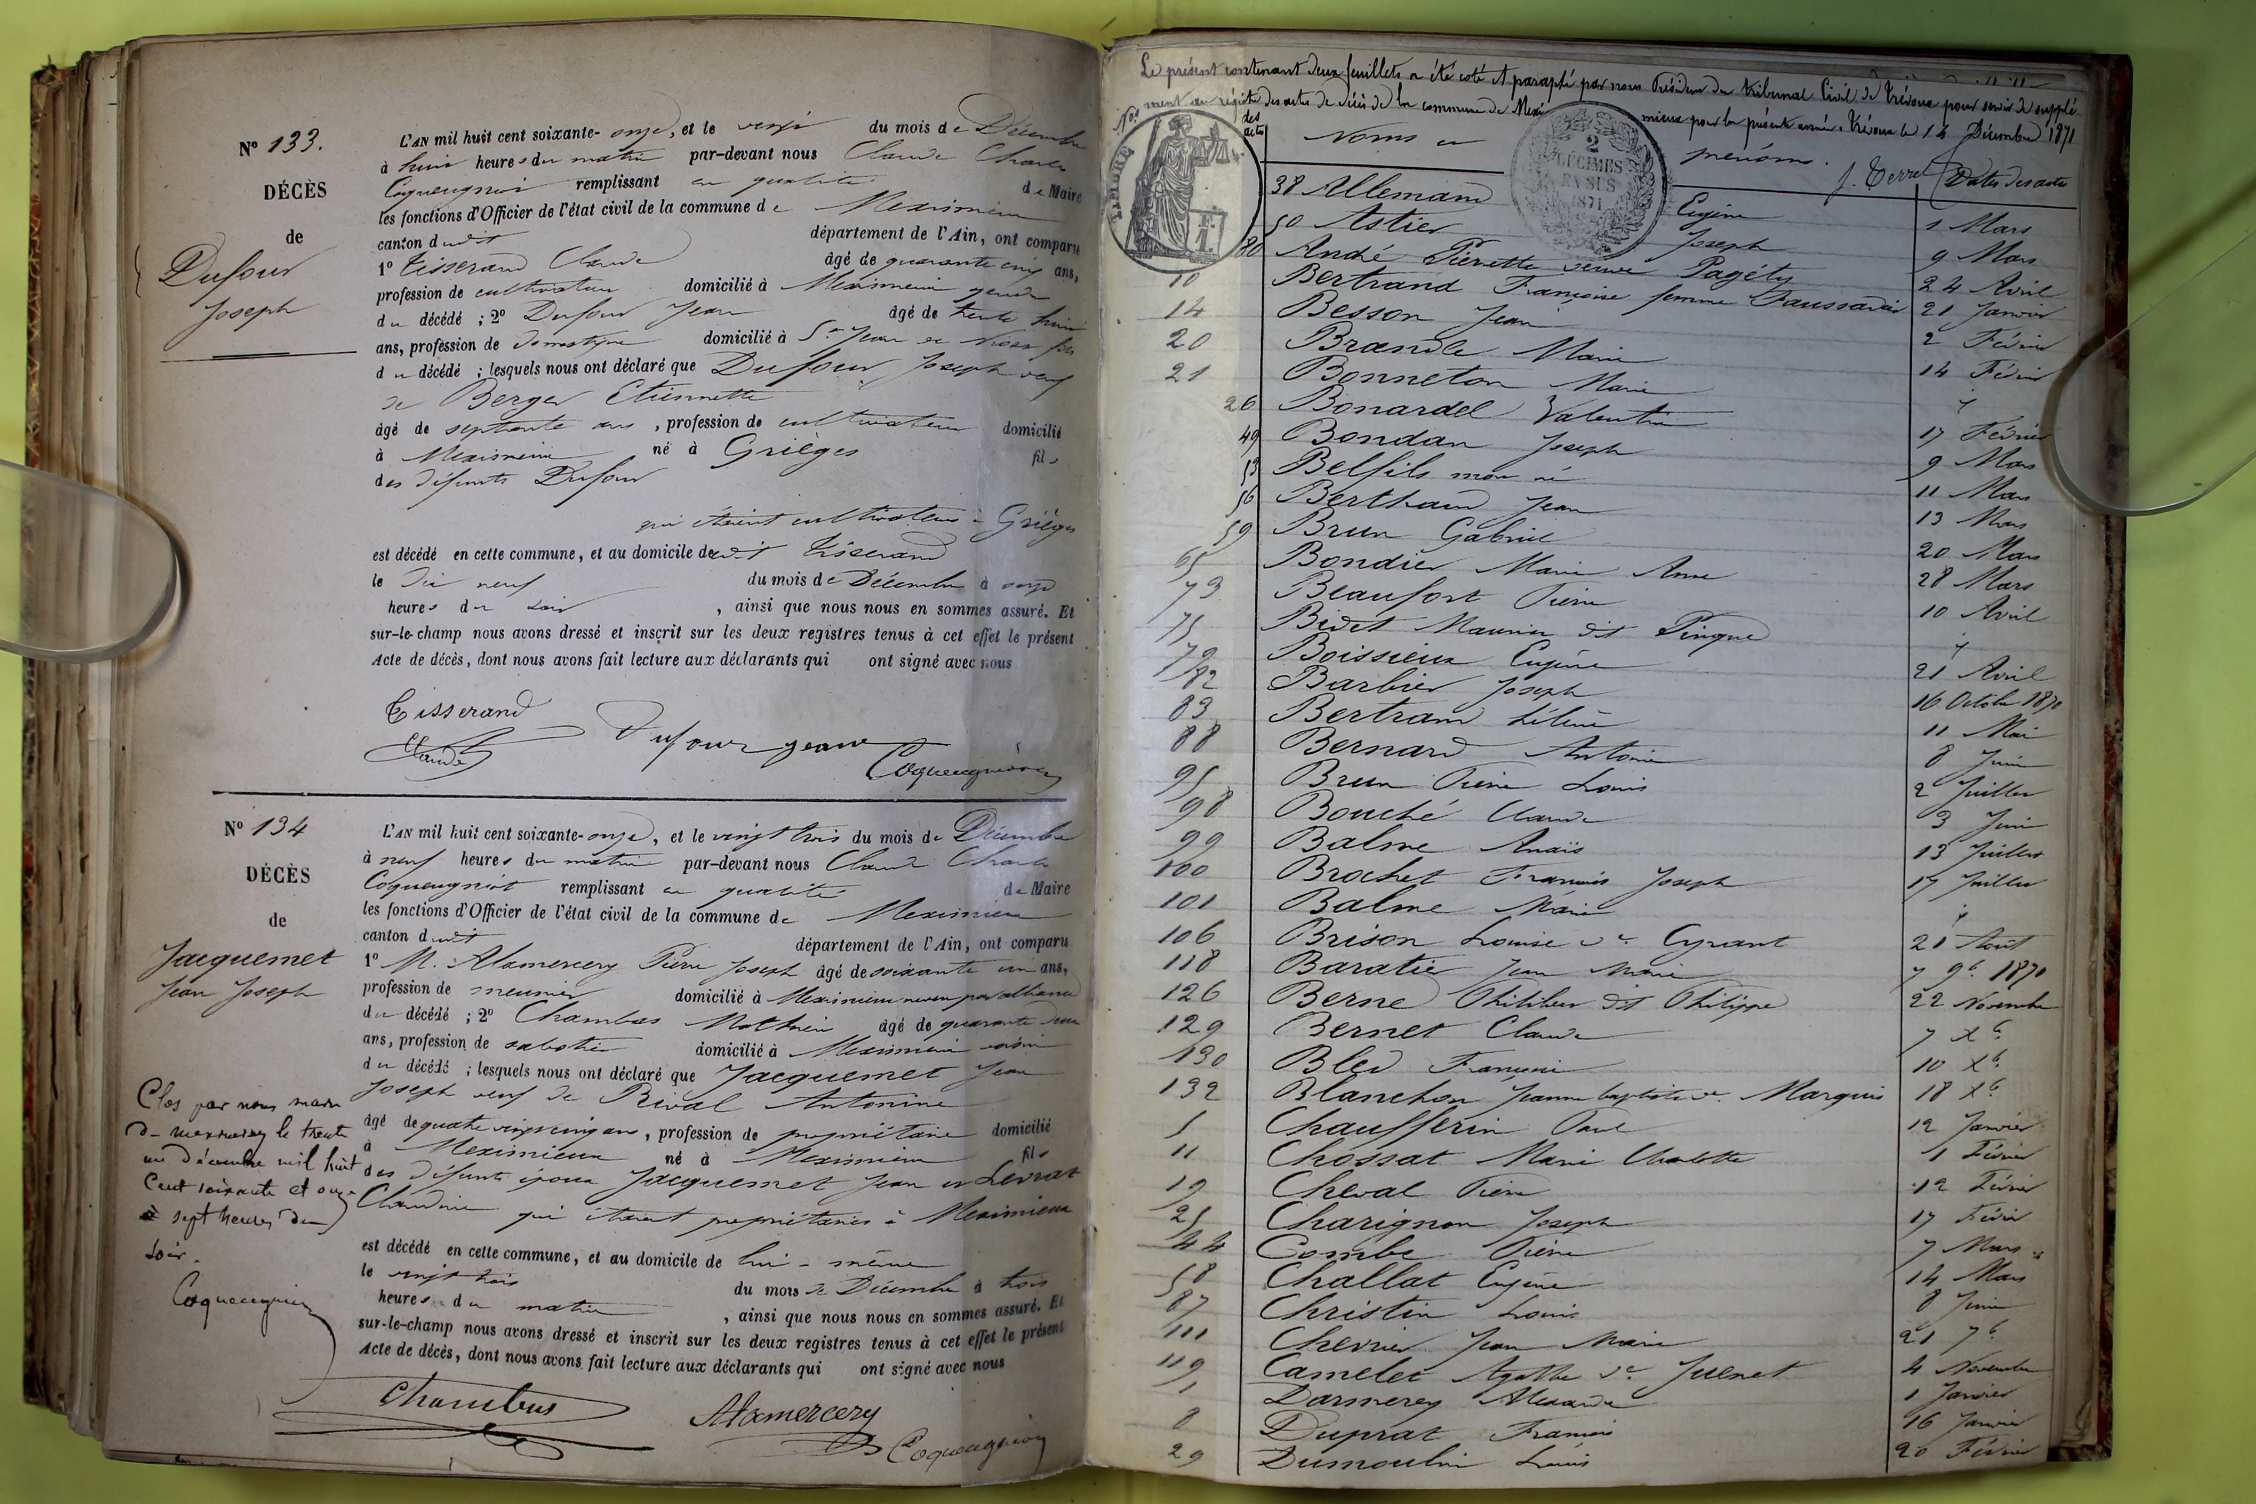 N° 133.
DÉCÈS
de
Dufour
Joseph
L'AN mil huit cent soixante-onze, et le vingt du mois de Décembre
à huit heures du matin par-devant nous Claude Charles
Coqueugniot remplissant en qualité de Maire
les fonctions d'Officier de l'état civil de la commune de Meximieux
canton dudit département de l'Ain, ont comparu
1° Tisserand Claude âgé de quarante cinq ans,
profession de cultivateur domicilié à Meximieux gendre
du décédé ; 2° Dufour Jean âgé de trente huit
ans, profession de domestique domicilié à St Jean de Niost fils
du décédé ; lesquels nous ont déclaré que Dufour Joseph veuf
de Berger Etiennette
âgé de septante ans, profession de cultivateur domicilié
à Meximieux né à Grièges fils
des défunts Dufour
qui étaient cultivateurs à Grièges
est décédé en cette commune, et au domicile dudit Tisserand
le dix neuf du mois de Décembre à onze
heures du soir, ainsi que nous nous en sommes assuré. Et
sur-le-champ nous avons dressé et inscrit sur les deux registres tenus à cet effet le présent
Acte de décès, dont nous avons fait lecture aux déclarants qui ont signé avec nous
Tisserand
Claude
Dufour jean
Coqueugniot
N° 134
DÉCÈS
de
Jacquemet
Jean Joseph
L'AN mil huit cent soixante-onze, et le vingt trois du mois de Décembre
à neuf heures du matin par-devant nous Claude Charles
Coqueugniot remplissant en qualité de Maire
les fonctions d'Officier de l'état civil de la commune de Meximieux
canton dudit département de l'Ain, ont comparu
1° M. Alamercery Pierre Joseph âgé de soixante un ans,
profession de meunier domicilié à Meximieux neveu par alliance
du décédé ; 2° Chambus Mathieu âgé de quarante
ans, profession de sabotier domicilié à Meximieux voisin
du décédé ; lesquels nous ont déclaré que Jacquemet Jean
Joseph veuf de Rival Antonine
âgé de quatre vingt cinq ans, profession de propriétaire domicilié
à Meximieux né à Meximieux fils
des défunts époux Jacquemet Jean et Levrat
Claudine qui étaient propriétaires à Meximieux
est décédé en cette commune, et au domicile de lui-même
le vingt trois du mois de Décembre à trois
heures du matin, ainsi que nous nous en sommes assuré. Et
sur-le-champ nous avons dressé et inscrit sur les deux registres tenus à cet effet le présent
Acte de décès, dont nous avons fait lecture aux déclarants qui ont signé avec nous
Clos par nous maire
de meximieux le trente
un décembre mil huit
cent soixante et onze
à sept heures du
soir.
Coqueugniot
Chambus
Alamercery
Coqueugniot
Le présent contenant deux feuillets a été coté et paraphé par nous Président du tribunal Civil de Trévoux pour servir de supplé
ment au registre des actes de décès de la commune de Meximieux pour la présente année. Trévoux le 14 Décembre 1871
J. Terrel
TIMBRE
1 F.
2 DÉCIMES EN SUS 1871
Nos des actes Noms et prénoms. Dates des actes
38 Allemand Eugène 1 Mars
50 Astier Joseph 9 Mars
80 André Pierrette veuve Pagéty 24 Avril
10 Bertrand Françoise femme 21 Janvier
14 Besson Jean 2 Février
20 Brandle Marie 14 Février
21 Bonneton Marie "
26 Bonardel Valentin 17 Février
49 Bondan Joseph 9 Mars
53 Belfils mort né 11 Mars
56 Berthaud Jean 13 Mars
59 Brun Gabriel 20 Mars
65 Bondier Marie Anne 28 Mars
73 Beaufort Pierre 10 Avril
75 Bidet Maurice dit Pingue "
79 Boissieux Eugène 21 Avril
82 Barbier Joseph 16 Octobre 1870
83 Bertrand Hélène 11 Mai
88 Bernard Antoine 8 Juin
95 Brun Pierre Louis 2 Juillet
98 Bouché Claude 3 Juin
99 Balme Anaïs 13 Juillet
100 Brochet François Joseph 17 Juillet
101 Balme Marie "
106 Brison Louise ve Cyrant 21 Août
118 Baratier Jean Marie 7 9b. 1870
126 Berne Philibert dit Philippe 22 Novembre
129 Bernet Claude 7 Xb.
130 Bled Françoise 10 Xb.
132 Blanchon Jeanne baptiste ve Marquis 18 Xb.
5 Chaufferin Paul 12 Janvier
11 Chossat Marie Charlotte 1 Février
19 Cheval Pierre 12 Février
25 Charignon Joseph 17 Février
44 Combe Pierre 7 Mars
58 Challat Eugène 14 Mars
87 Christin Louis 8 Juin
111 Chevrier Jean Marie 21 7b.
119 Camelet Agathe ve Juenet 4 Novembre
1 Darmerey Alexandre 1 Janvier
8 Duprat François 16 Janvier
29 Dumoulin Louis 20 Février